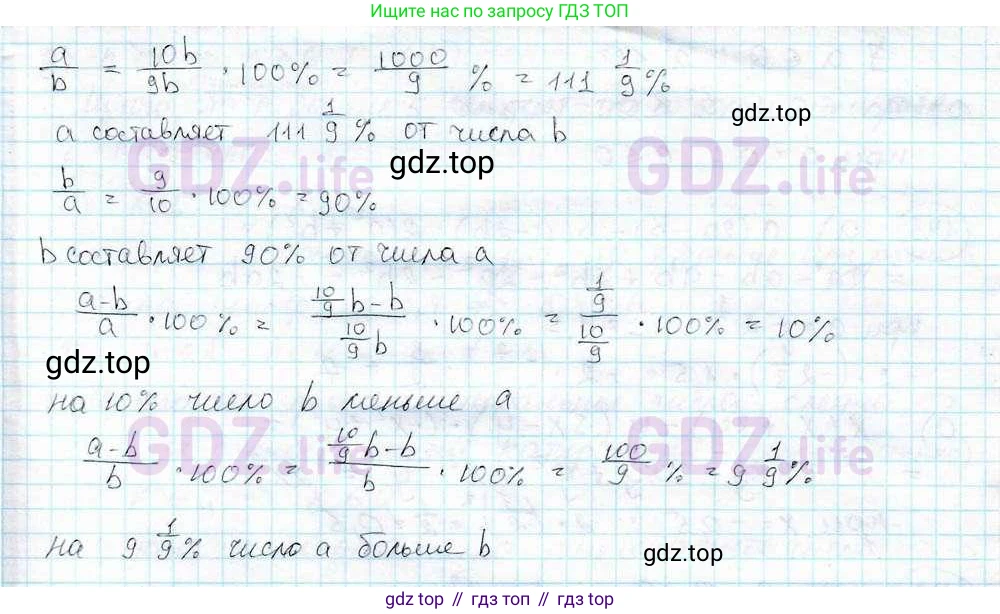 Ищите нас по запросу ГДЗ ТОП
a/b = 10b/9b · 100% = 1000/9 % = 111 1/9 %
gdz.top
a составляет 111 1/9 % от числа b
GDZ.life GDZ.life
gdz.top
b/a = 9/10 · 100% = 90%
b составляет 90% от числа a
(a-b)/a · 100% = (10/9 b - b)/(10/9 b) · 100% = (1/9)/(10/9) · 100% = 10%
gdz.top
на 10% число b меньше a
GDZ.life GDZ.life
(a-b)/b · 100% = (10/9 b - b)/b · 100% = 100/9 % = 9 1/9 %
на 9 1/9 % число a больше b
gdz.top
gdz top // гдз топ // gdz top